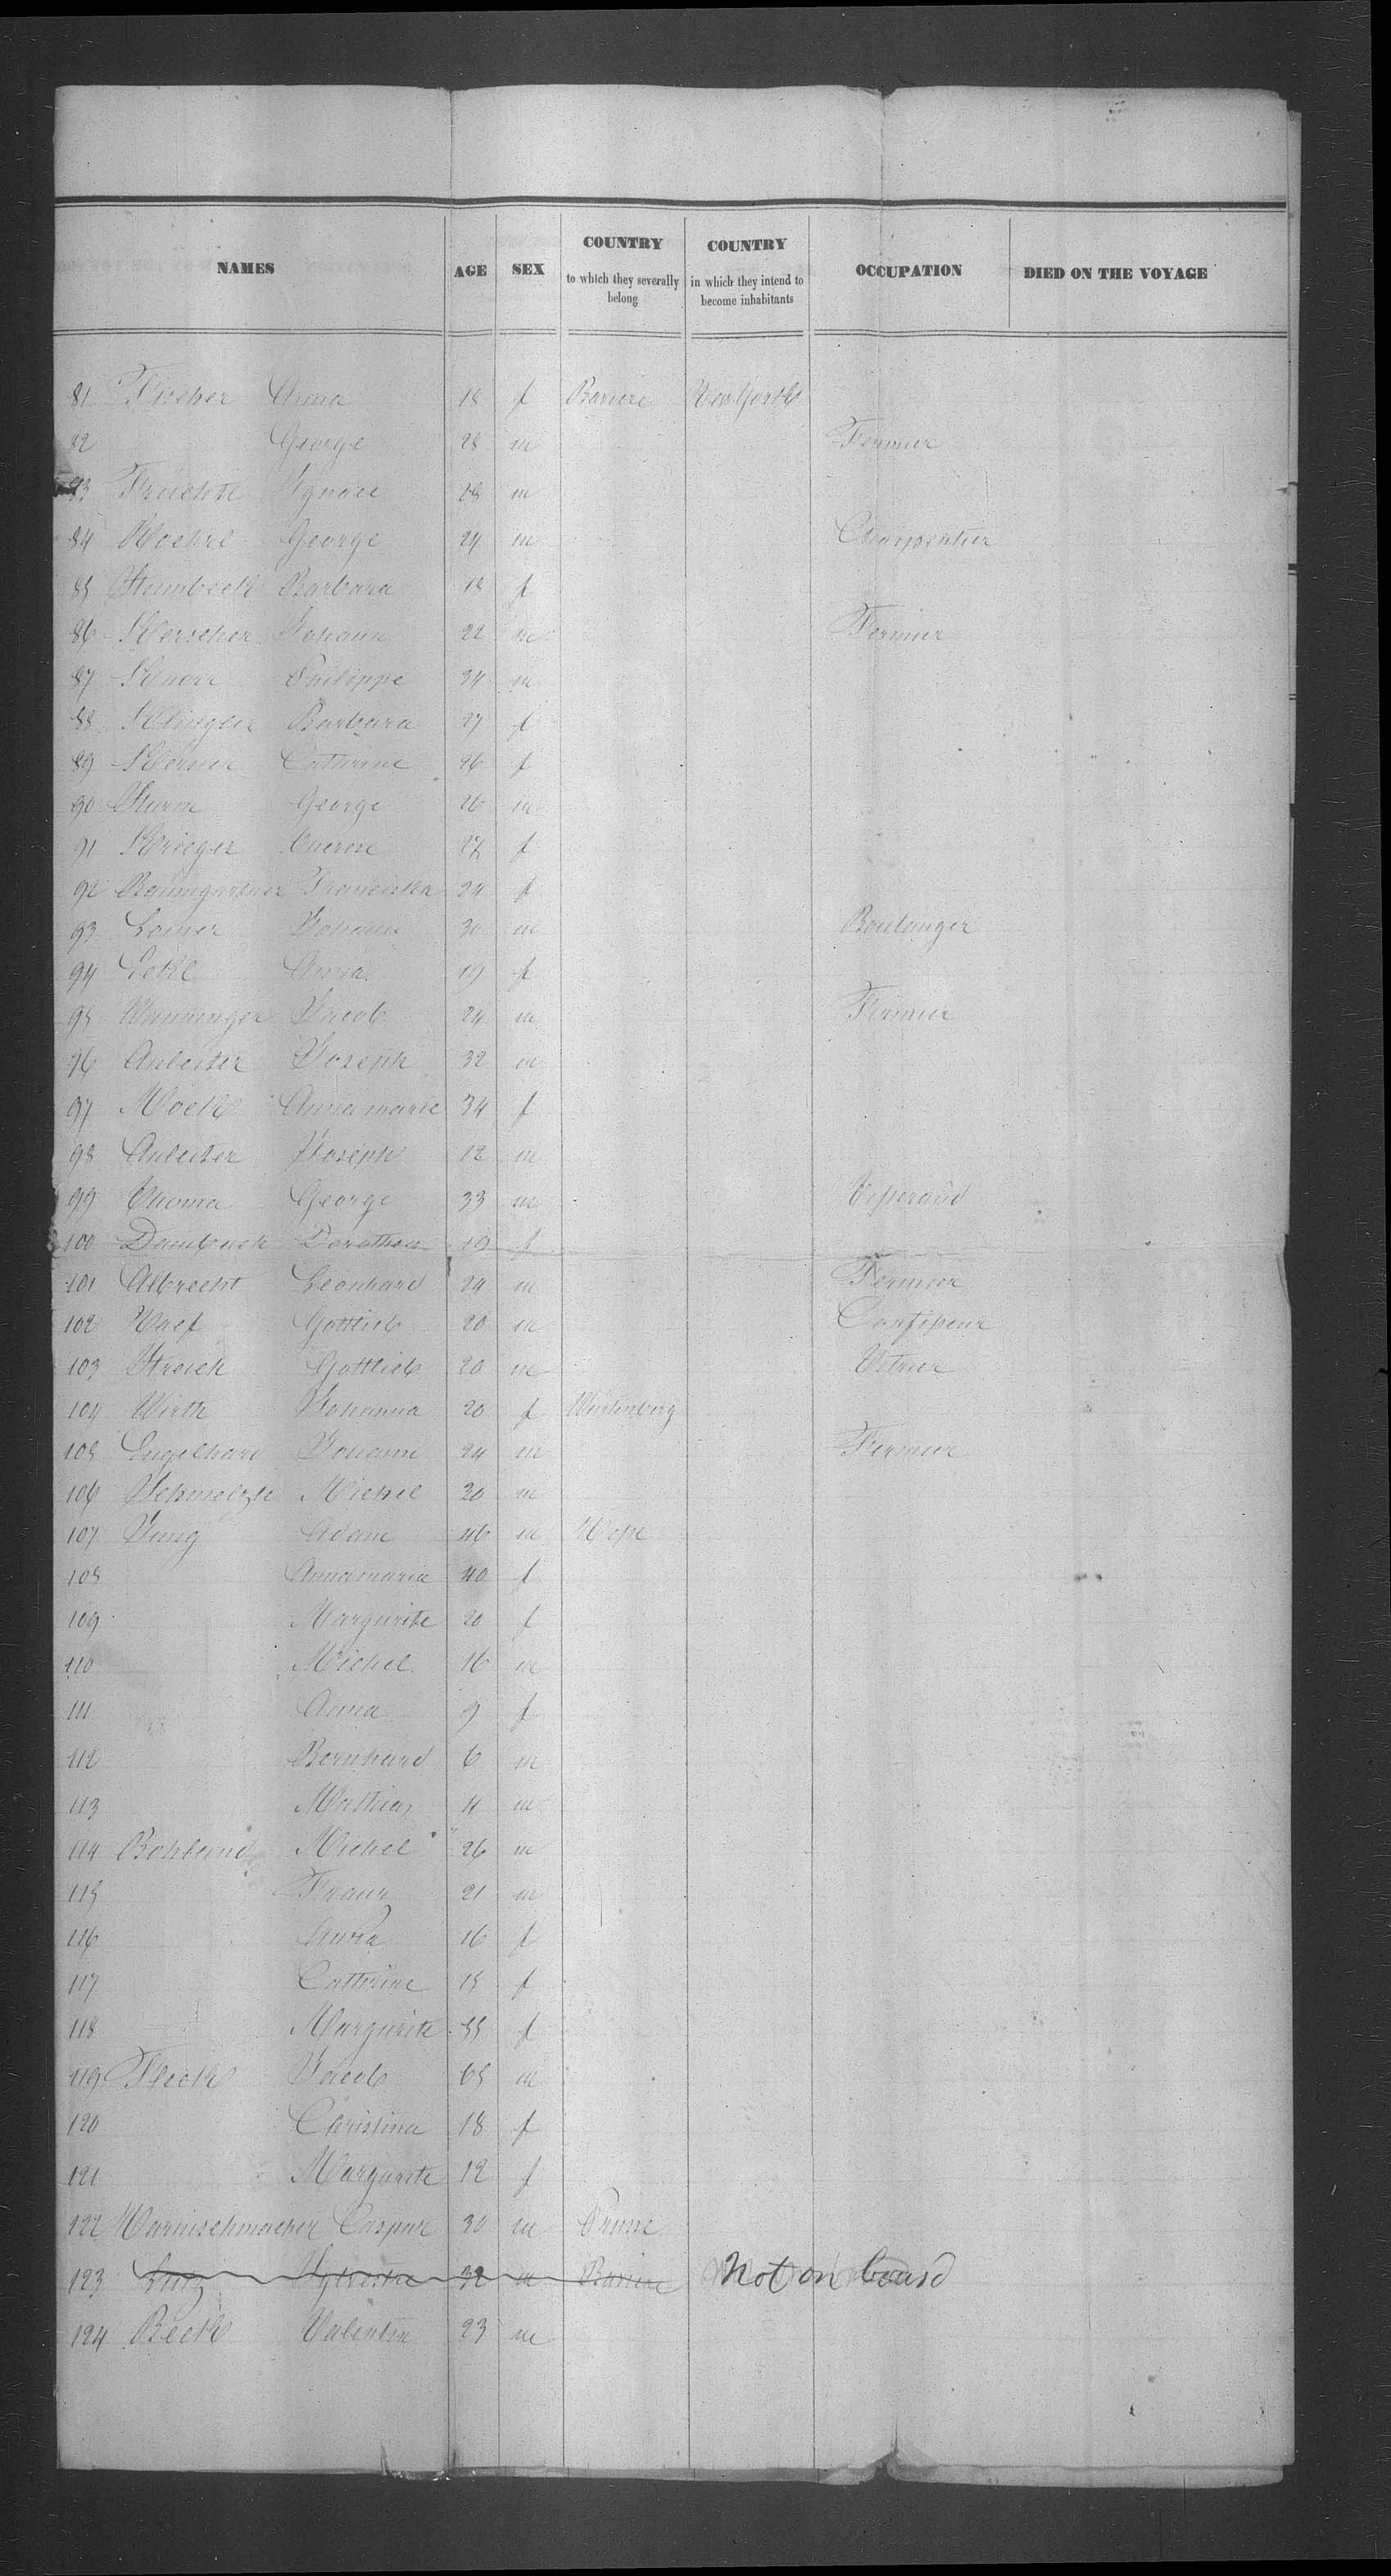 NAMES AGE SEX COUNTRY to which they severally belong COUNTRY in which they intend to become inhabitants OCCUPATION DIED ON THE VOYAGE
81 Fischer Anna 18 f Baviere NewYork
82 George 28 m Fermier
83 Ignace 28 m
84 George 24 m Charpentier
85 Barbara 18 f
86 Johann 22 m Fermier
87 Knorr Philippe 24 m
88 Klingler Barbara 27 f
89 Catherine 26 f
90 Sturm George 26 m
91 Krieger 27 f
92 Baumgartner Franciska 24 f
93 Johann 30 m Boulanger
94 Anna 19 f
95 Jacob 24 m Fermier
96 Anleiter Joseph 32 m
97 Annamarie 34 f
98 Anleiter Joseph 12 m
99 Thoma George 33 m
100 Dorothea 19 f
101 Albrecht Leonhard 24 m Fermier
102 Gottlieb 20 m
103 Gottlieb 20 m
104 Wirth Johanna 20 f Würtenberg
105 Engelhard Johann 24 m Fermier
106 Schmelzle Michel 30 m
107 Jung Adam 46 m
108 Annamaria 40 f
109 Margurite 20 f
110 Michel 16 m
111 Anna 9 f
112 Bernhard 6 m
113 Mathias 4 m
114 Michel 26 m
115 Franz 21 m
116 Anna 16 f
117 Catherine 15 f
118 Margurite 55 f
119 Fleck Jacob 65 m
120 Christina 18 f
121 Margurite 12 f
122 Harnischmacher Caspar 30 m Prusse
123 Lutz Sylvester 32 m Baviere Not on board
124 Beck Valentin 23 m